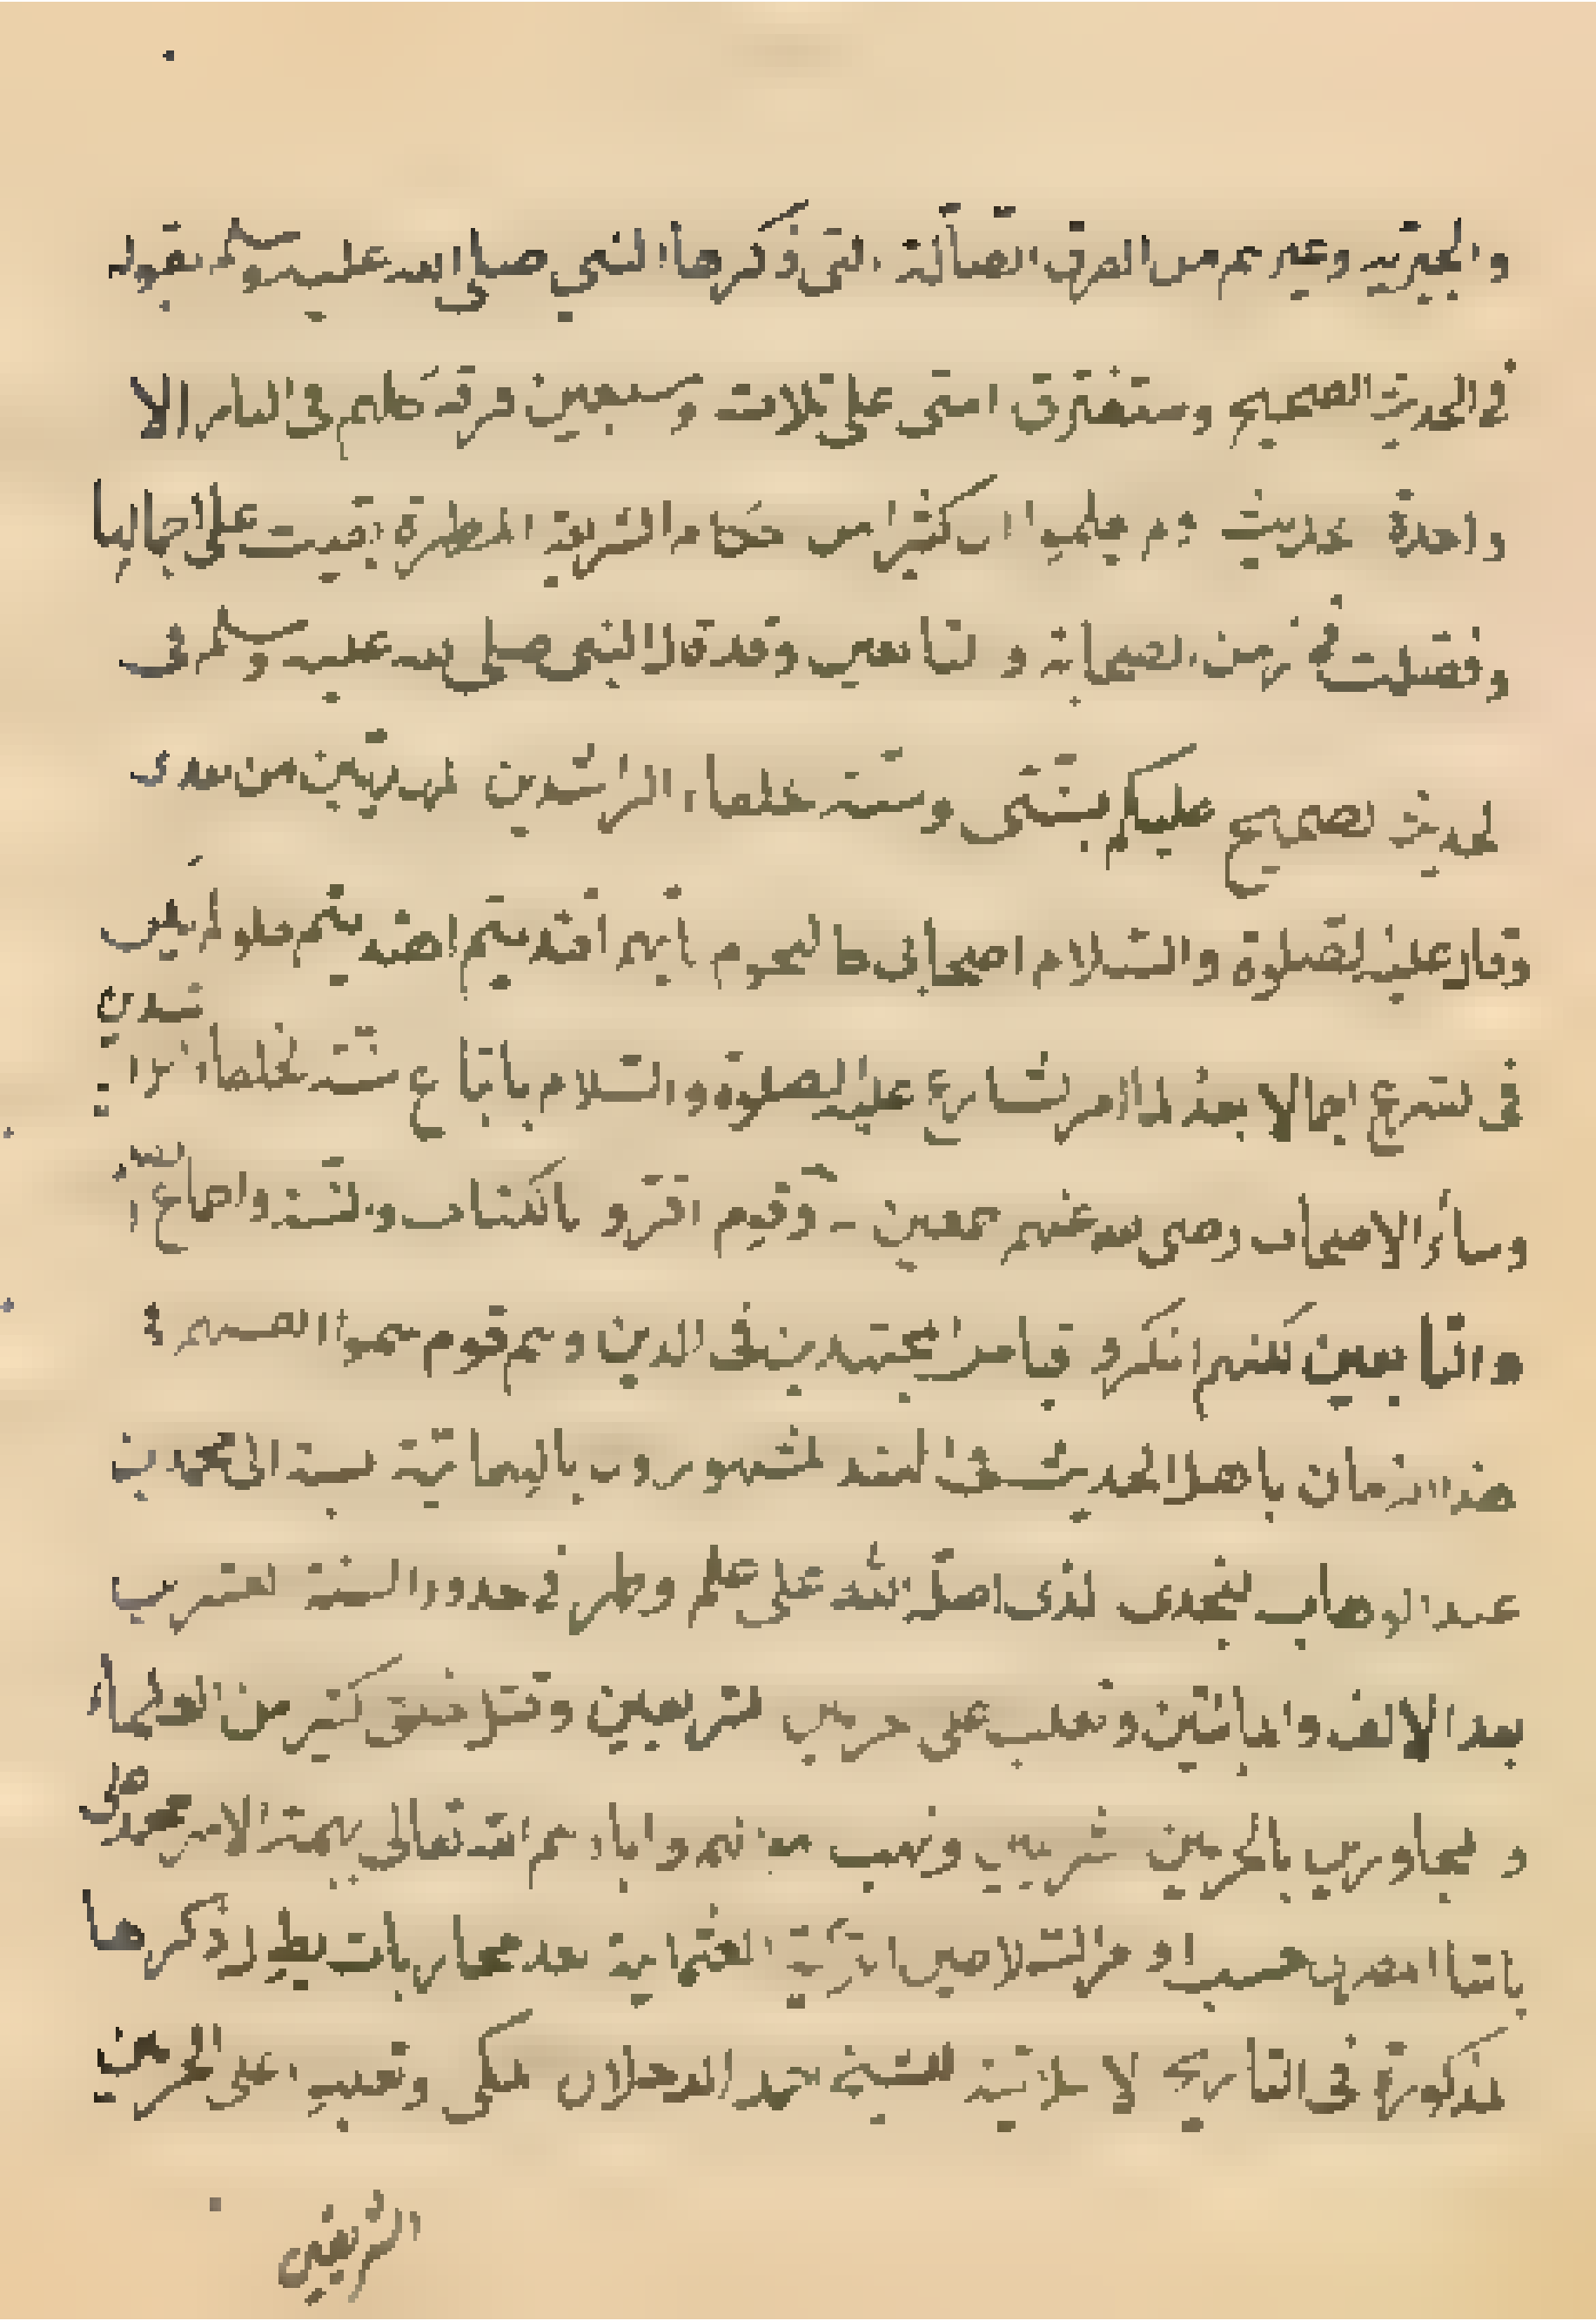 والجبرية وغيرهم من الفرق الضالة التى ذكرها النبي صلى الله عليه وسلم بقوله
فى الحديث الصحيح وستفترق امتى على ثلاث وسبعين فرقة كلهم فى النار الا
واحدة الحديث ولم يعلموا ان كثيرا من احكام الشريعة المطهرة بقيت على اجمالها
وفصلت فى زمن الصحابة والتابعين وقد قال النبى صلى الله عليه وسلم فى
الحديث الصحيح عليكم بسنتى وسنة خلفاء الراشدين المهديين من بعدى
وقال عليه الصلوة والسلام اصحابى كالنجوم بايهم اقتديتم اهتديتم فلو لم يكن
فى الشرع اجمالا بعد لما امر الشارع عليه الصلوة والسلام باتباع سنة الخلفاء الراشدين
وسائر الاصحاب رضى الله عنهم اجمعين - وقوم اقروا بالكتاب والسنة واجماع
والتابعين لكنهم انكروا قياس المجتهدين فى الدين وهم قوم سموا انفسهم فى
هذا الزمان باهل الحديث فى الهند المشهورون بالوهابية نسبة الى محمد بن
عبد الوهاب النجدى الذى اضله الله على علم وظهر فى حدود السنة العشرين
بعد الالف والمائتين وتغلب على حرمين الشريفين وقتل خلق كثير من العلماء
والمجاورين بالحرمين الشريفين ونهب اموالهم وابادهم الله تعالى بهمة الامير محمد على
باشا المصرى حسب امر الدولة التركية العثمانية بعد محاربات يطول ذكرها
المذكورة فى التاريخ الاسلامية للشيخ احمد الدحلان المكى وتغلب على الحرمين
الشريفين